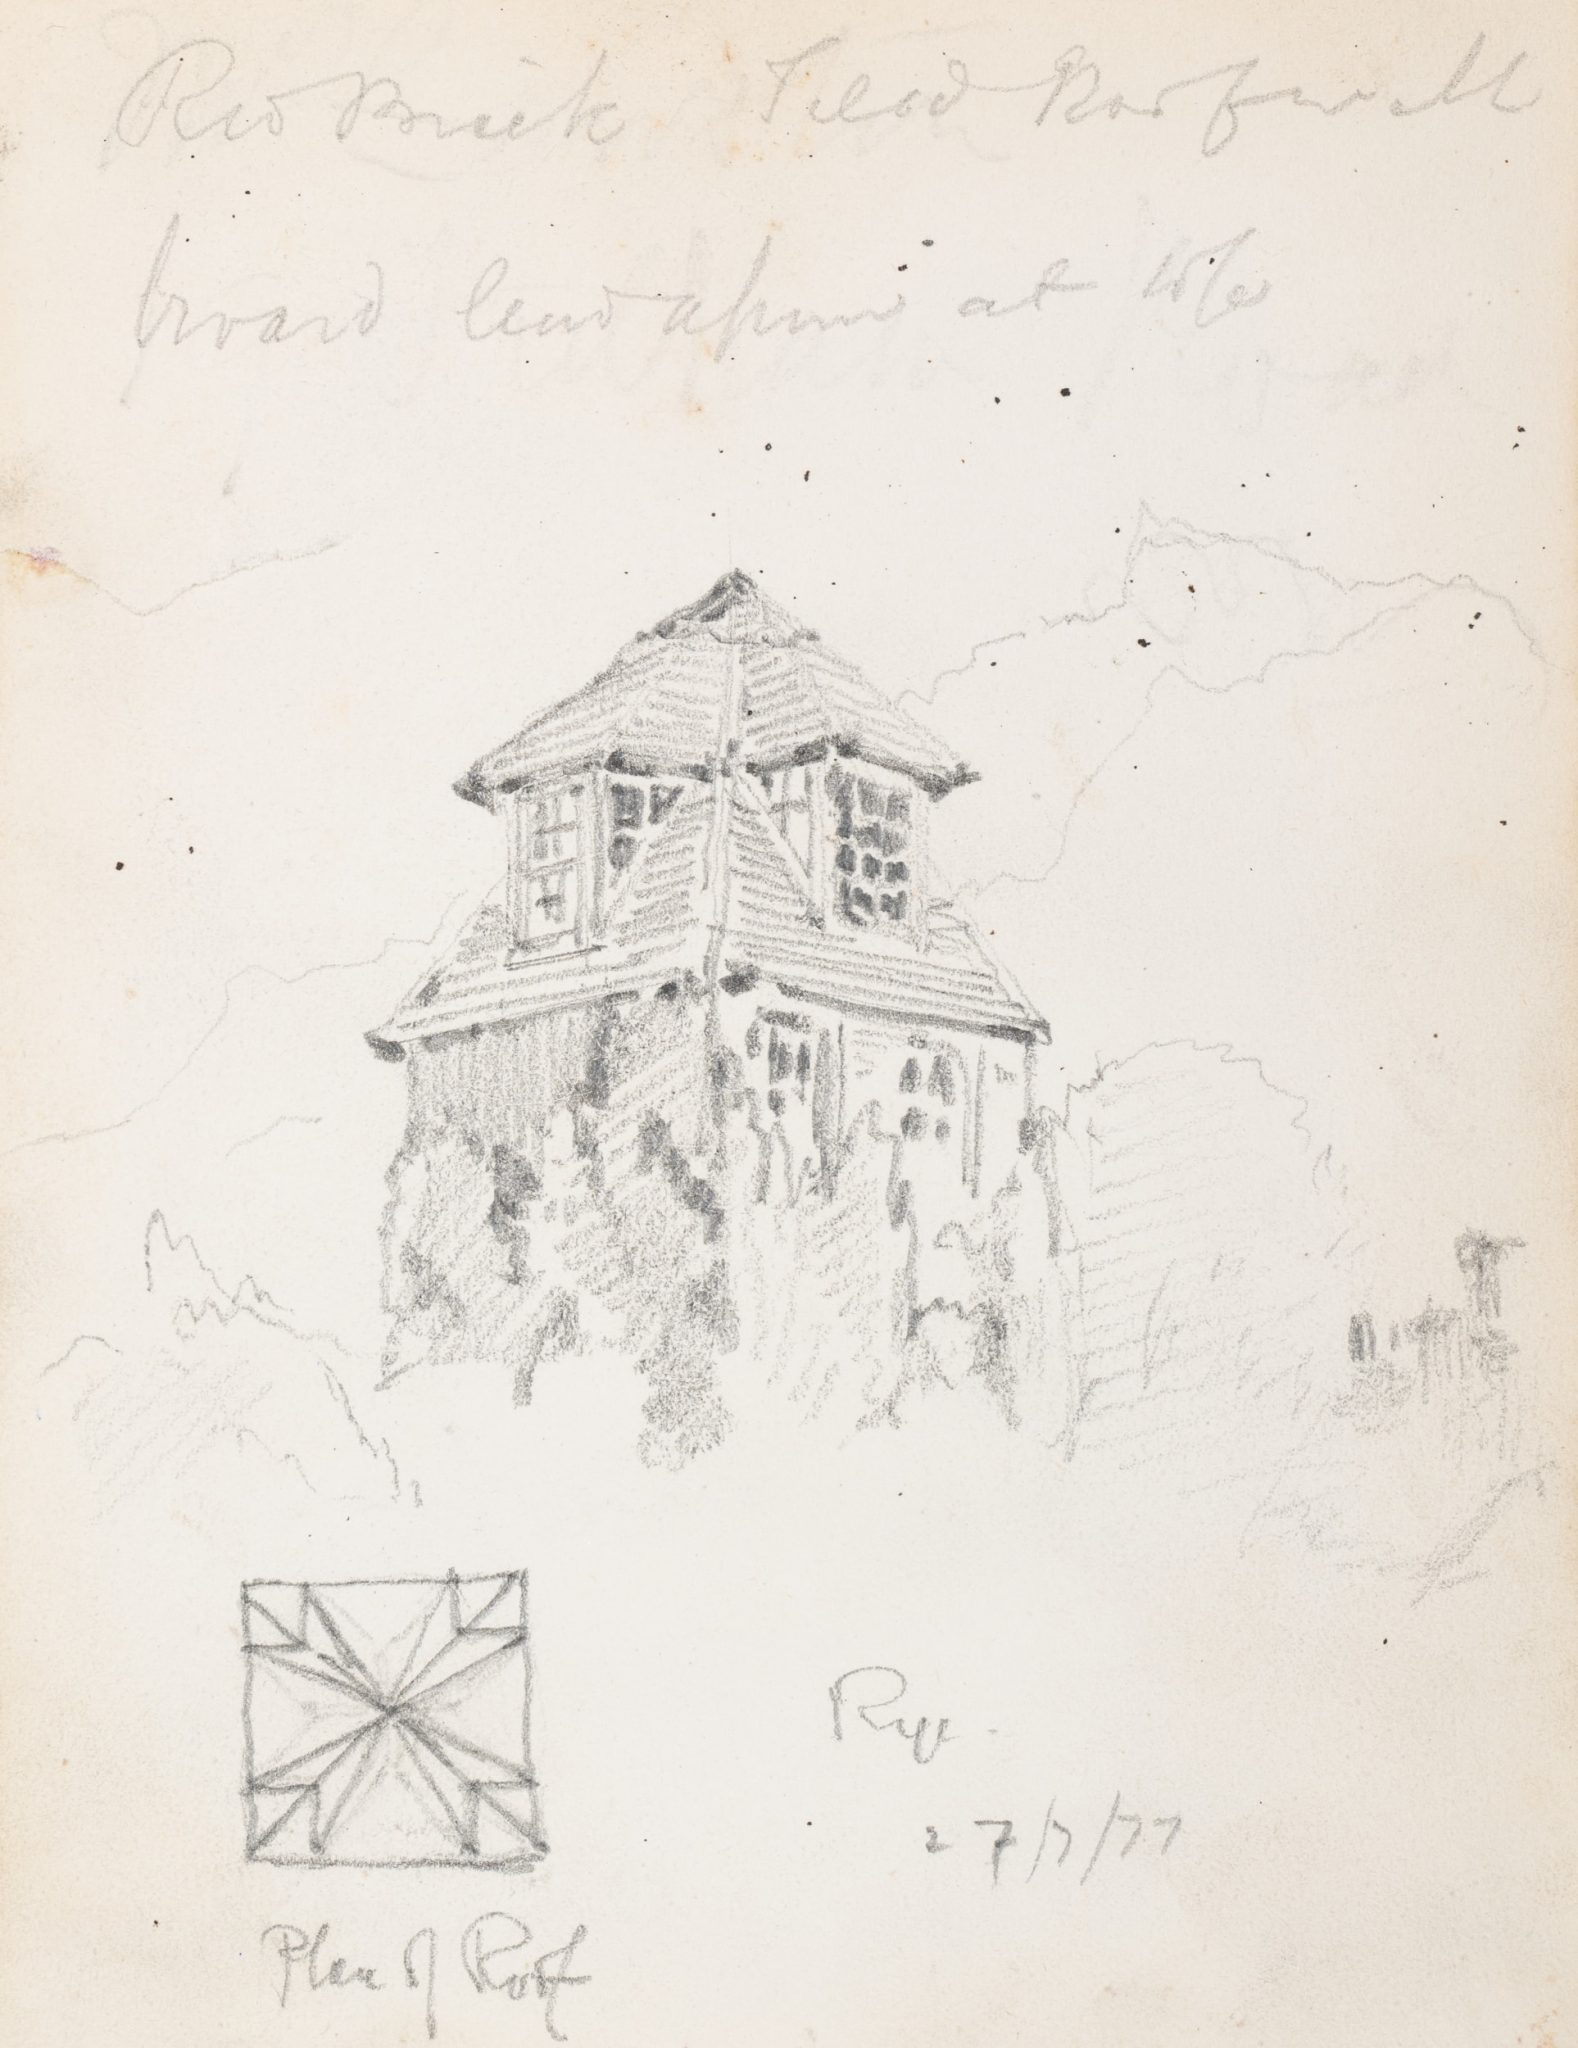 Red Brick Tiled Roof small
broad lead apron at
Rye.
27/7/77
Plan of Roof